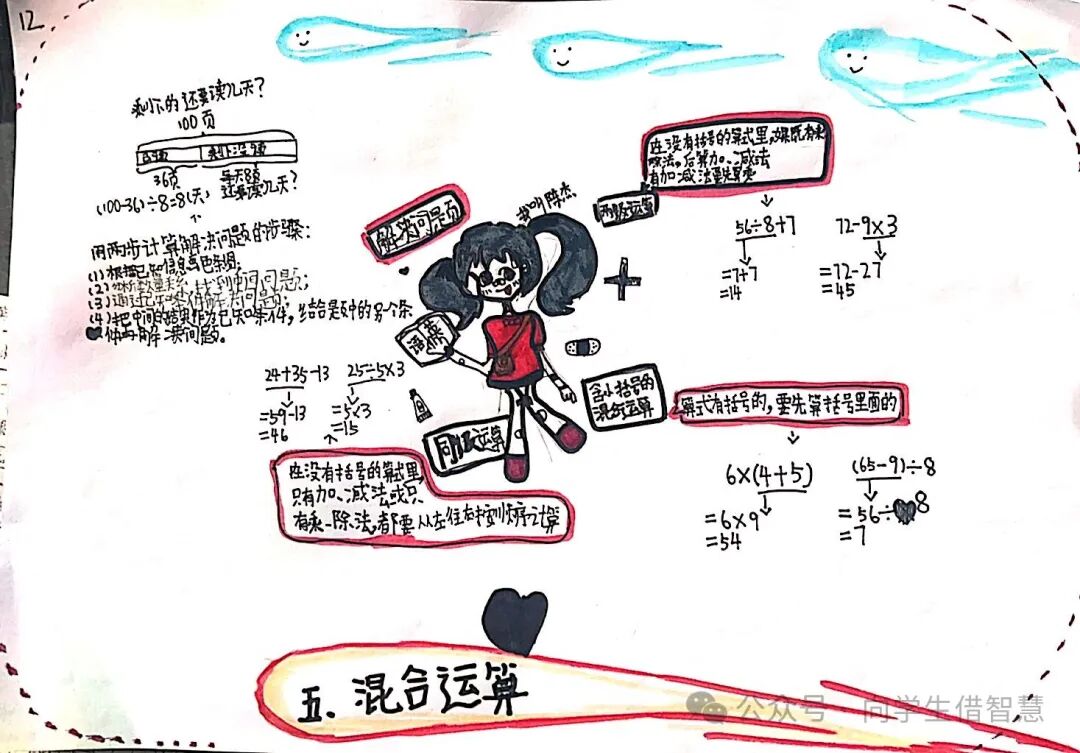 12
剩下的还要读几天?
100页
已读
剩下没读
36页
每天8页
还要读几天?
(100-36)÷8=8(天)
用两步计算解决问题的步骤:
(1)根据已知信息画色条图;
(2)分析数量关系,找到中间问题;
(4)把中间的结果作为已知条件,
件再解决问题。
解决问题
我叫陈杰
两级运算
在没有括号的算式里,如果既有乘
除法,后算加、减法
有加减法要先算乘
56÷8+7
=7+7
=14
72-9×3
=72-27
=45
含小括号的
混合运算
算式有括号的,要先算括号里面的
6×(4+5)
=6×9
=54
(65-9)÷8
=56÷8
=7
24+35-13
=59-13
=46
25÷5×3
=5×3
=15
同级运算
在没有括号的算式里,
只有加、减法或只
有乘、除法,都要从左往右按顺序计算
五、混合运算
公众号 · 向学生借智慧